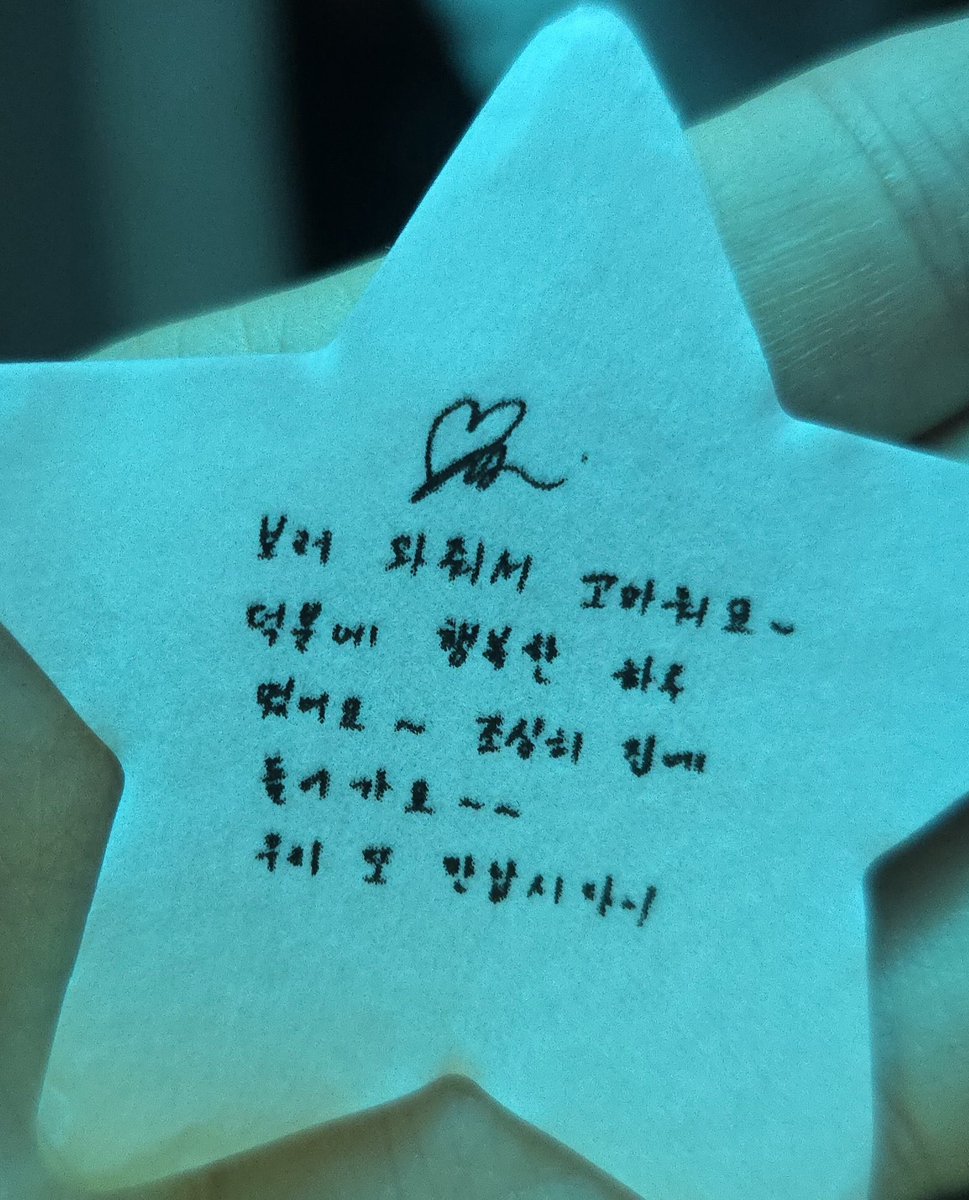 보러 와줘서 고마워요~
덕분에 행복한 하루
였어요~ 조심히 집에
들어가요~~
우리 또 만납시다!